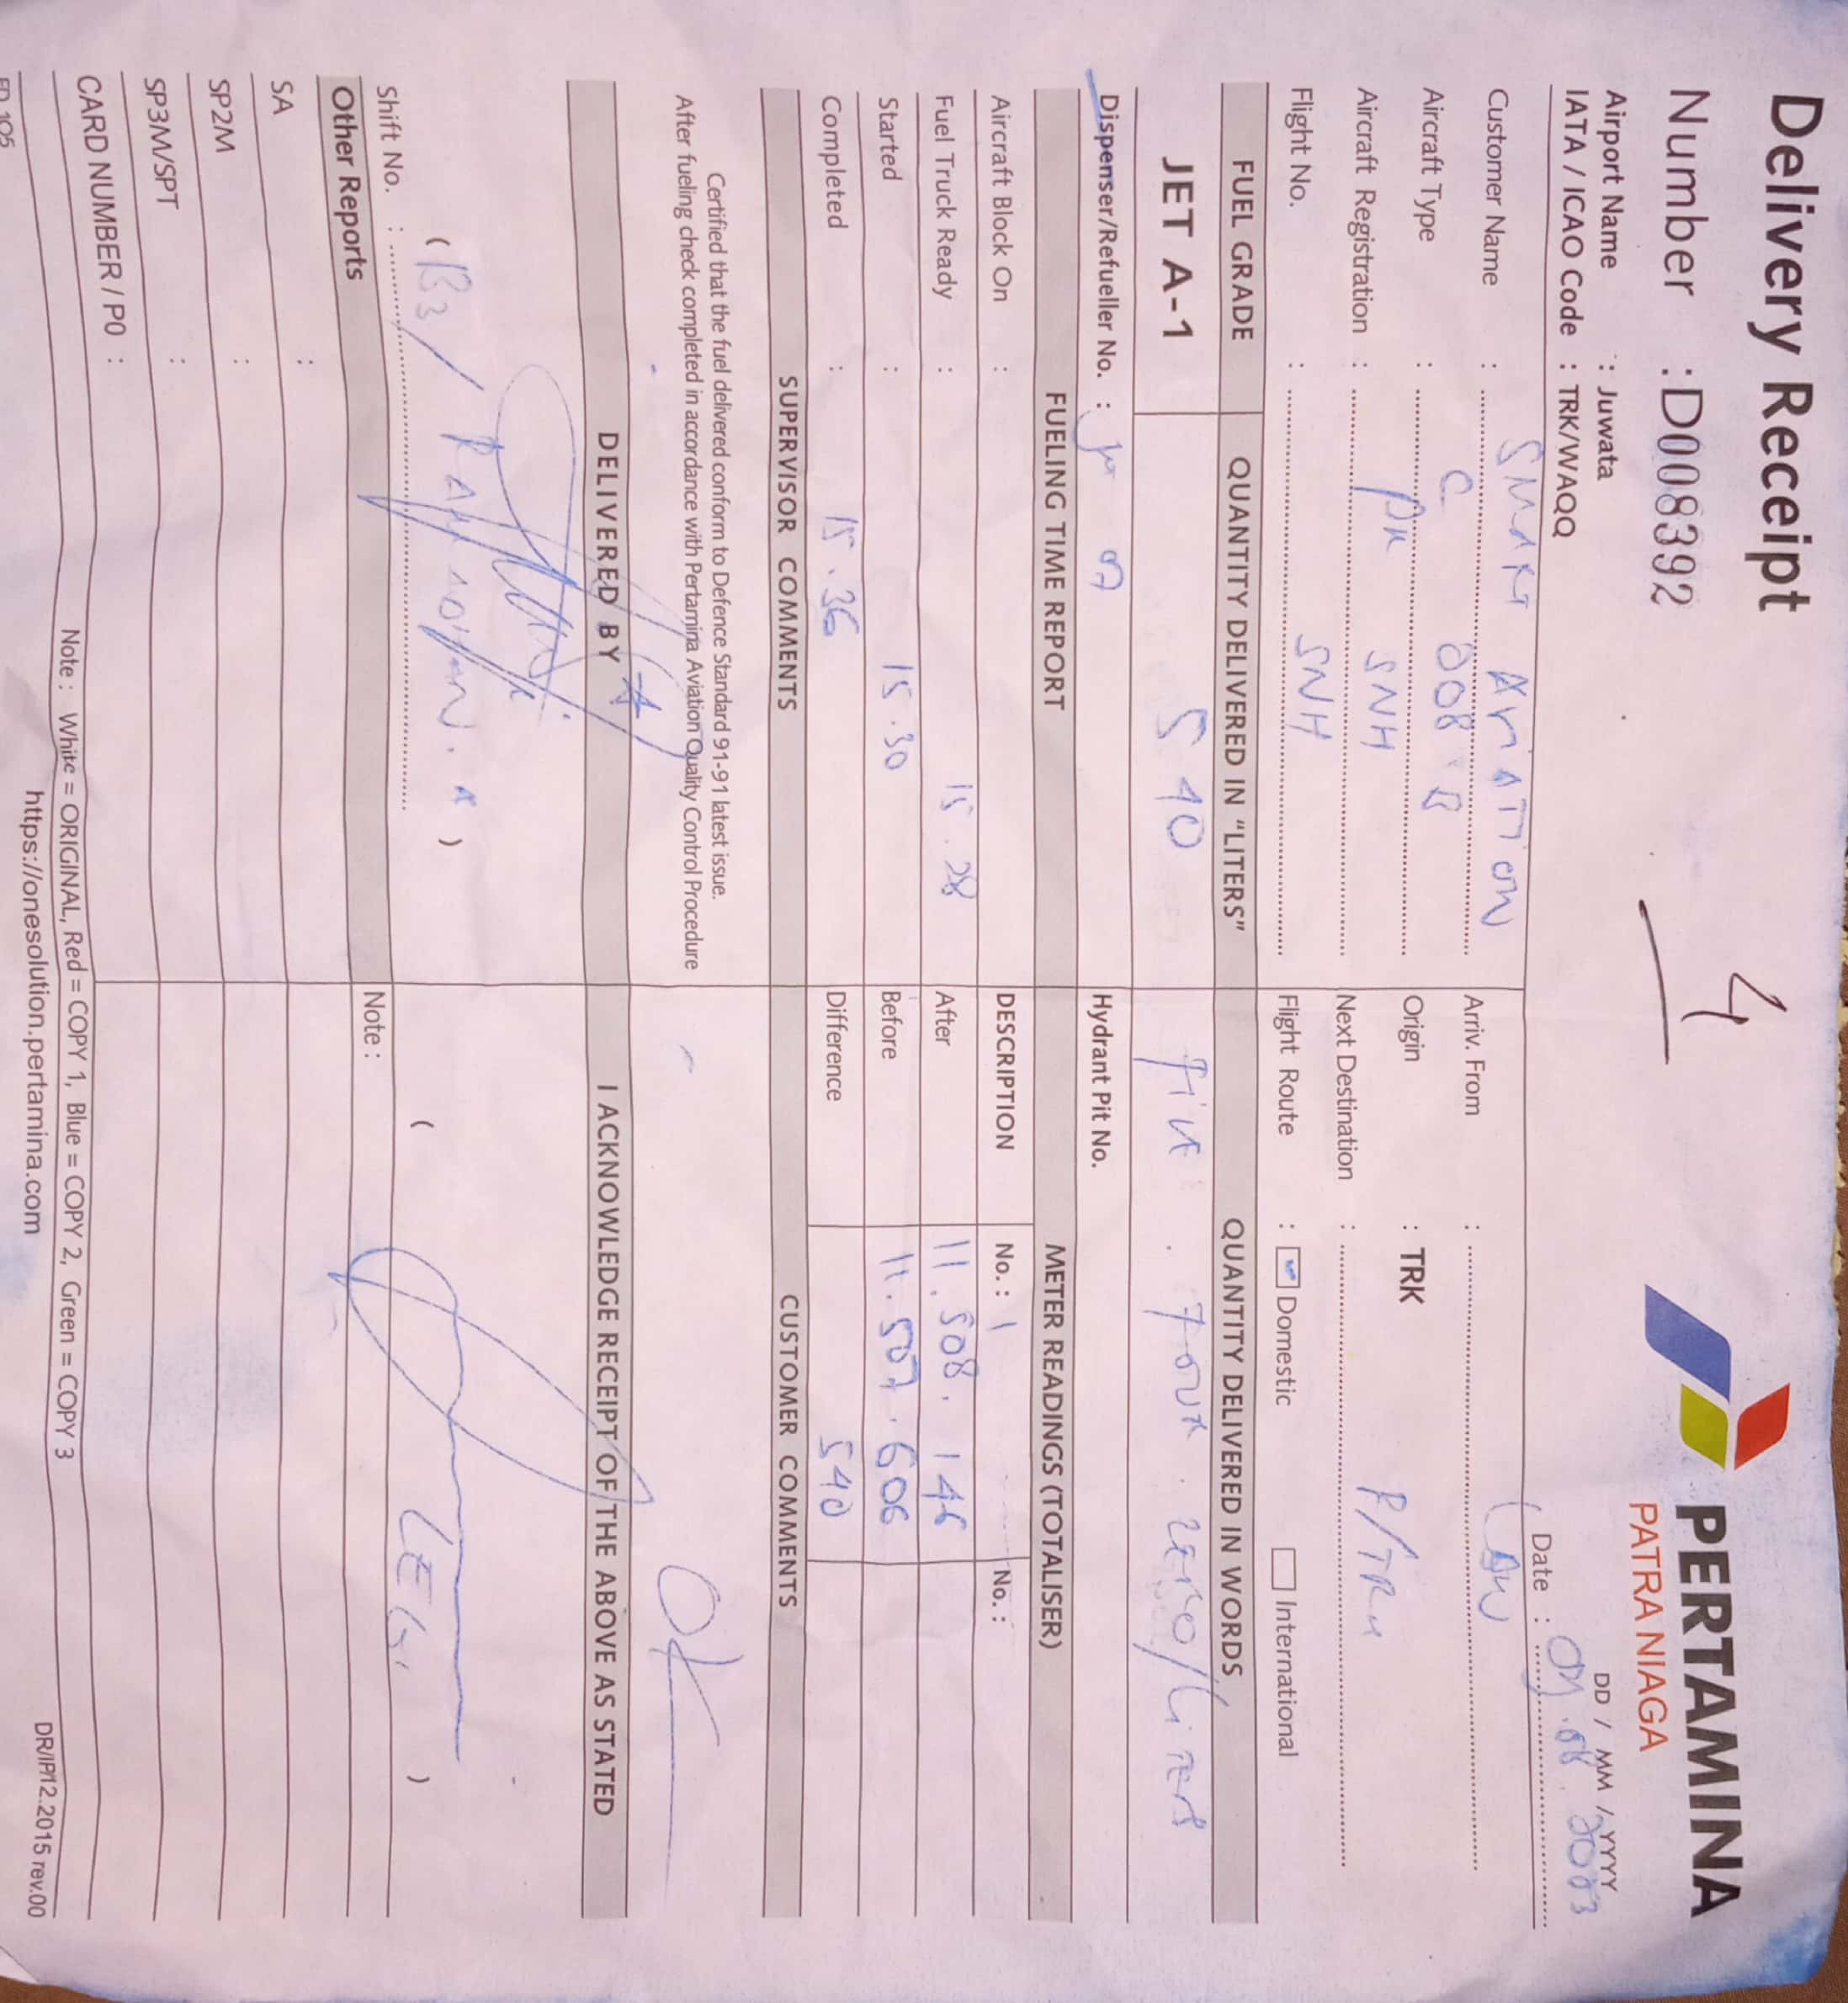 Delivery Receipt
4
PERTAMINA
PATRA NIAGA
Number : D0083392
Airport Name : Juwata
DD / MM / YYYY
IATA / ICAO Code : TRK/WAQQ
Date : 09.08.2023
Customer Name : SMART AVIATION
Arriv. From :
Aircraft Type : C 208 B
Origin : TRK
Aircraft Registration : PK SNH
Next Destination :
Flight No. : SNH
Flight Route : Domestic International
FUEL GRADE QUANTITY DELIVERED IN "LITERS" QUANTITY DELIVERED IN WORDS
JET A-1 540 five . four . zero / Liters
Dispenser/Refueller No. :
Hydrant Pit No.
FUELING TIME REPORT METER READINGS (TOTALISER)
Aircraft Block On : DESCRIPTION No. : 1 No. :
Fuel Truck Ready : 15.28 After 11.508.146
Started : 15.30 Before 11.507.606
Completed : 15.36 Difference 540
SUPERVISOR COMMENTS CUSTOMER COMMENTS
Certified that the fuel delivered conform to Defence Standard 91-91 latest issue.
After fueling check completed in accordance with Pertamina Aviation Quality Control Procedure
OK
DELIVERED BY I ACKNOWLEDGE RECEIPT OF THE ABOVE AS STATED
Shift No. :
Other Reports Note :
SA :
SP2M :
SP3M/SPT :
CARD NUMBER / P0 :
Note : White = ORIGINAL, Red = COPY 1, Blue = COPY 2, Green = COPY 3
DR/IP/12.2015 rev.00
https://onesolution.pertamina.com